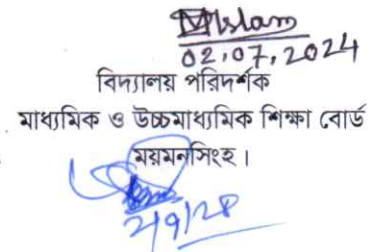 02.07.2024
বিদ্যালয় পরিদর্শক
মাধ্যমিক ও উচ্চমাধ্যমিক শিক্ষা বোর্ড
ময়মনসিংহ।